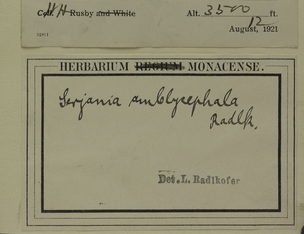 Coll. HH Rusby and White Alt. 3500 ft.
12
August, 1921
HERBARIUM REGIUM MONACENSE.
Serjania amblycephala
Radlk.
Det. L. Radlkofer